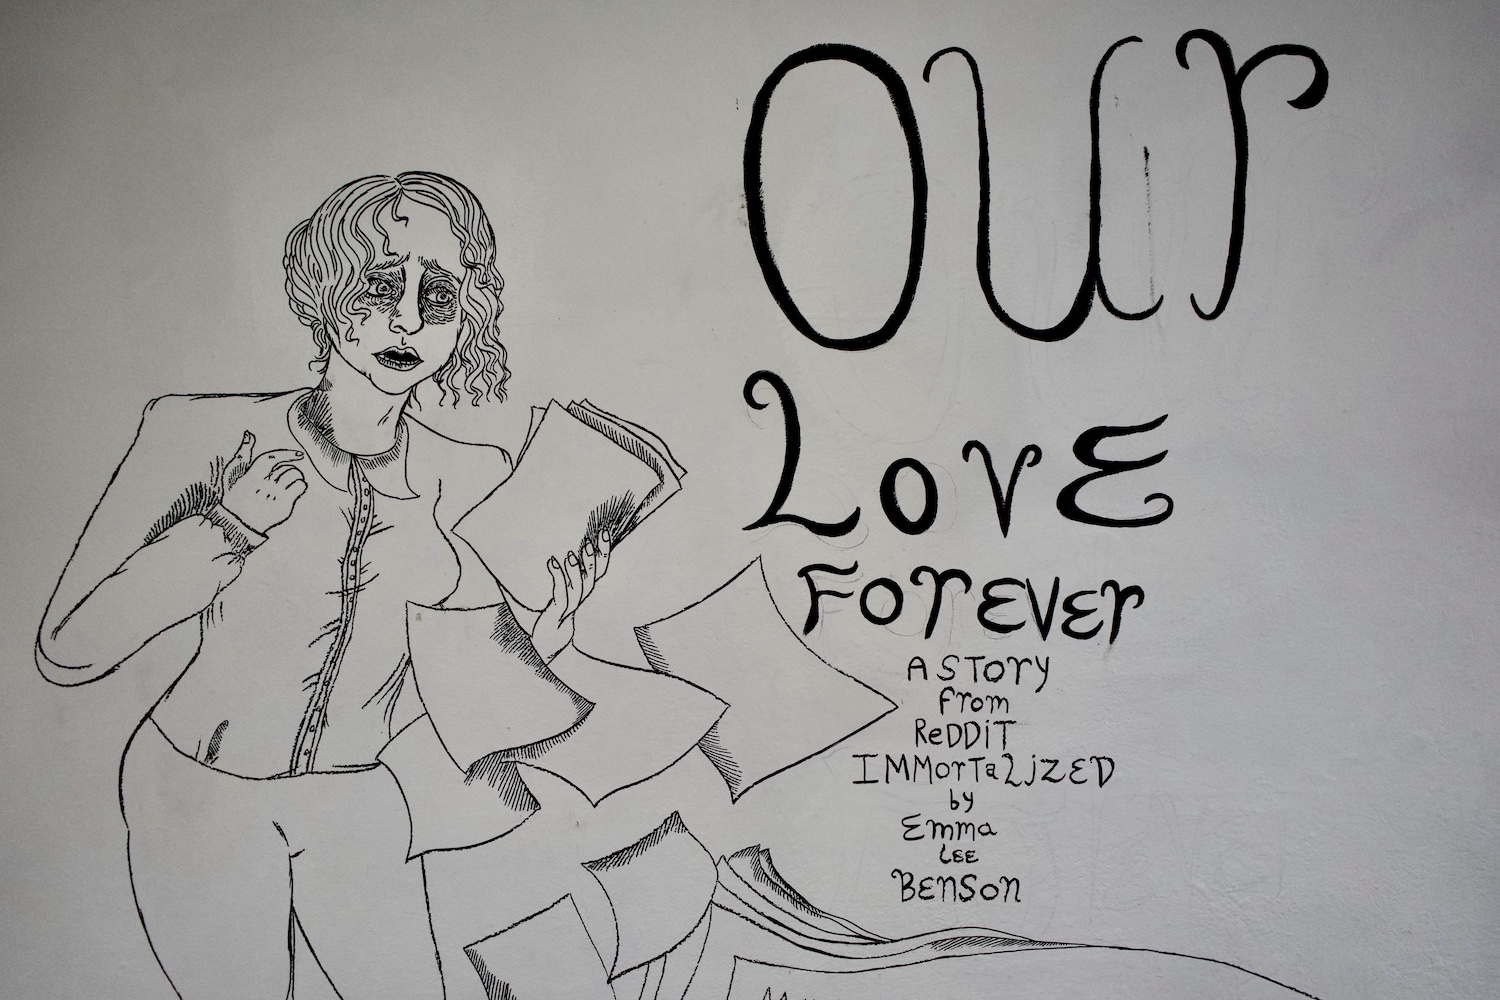 OUr
LOVE
FOrEVEr
A STOrY
From
ReDDiT
IMMOrTaLiZED
by
Emma
LEE
BENSON